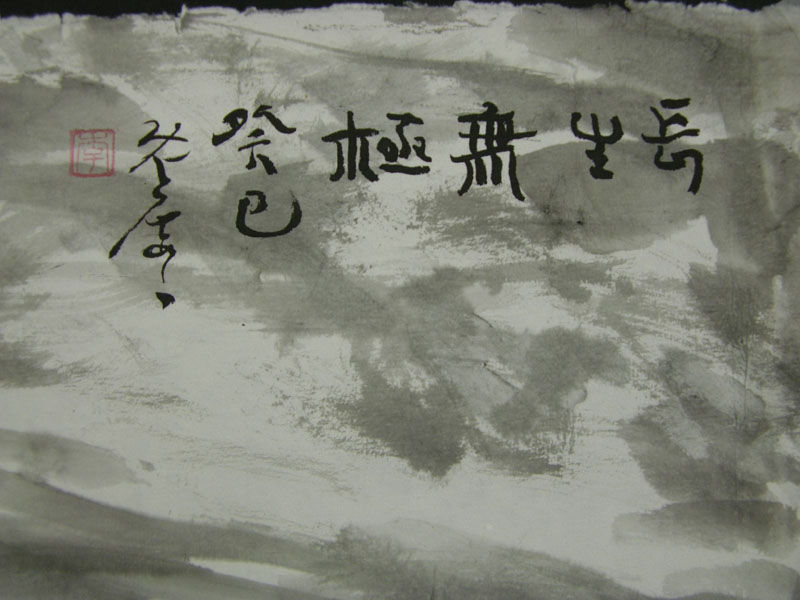 長生無極
癸巳